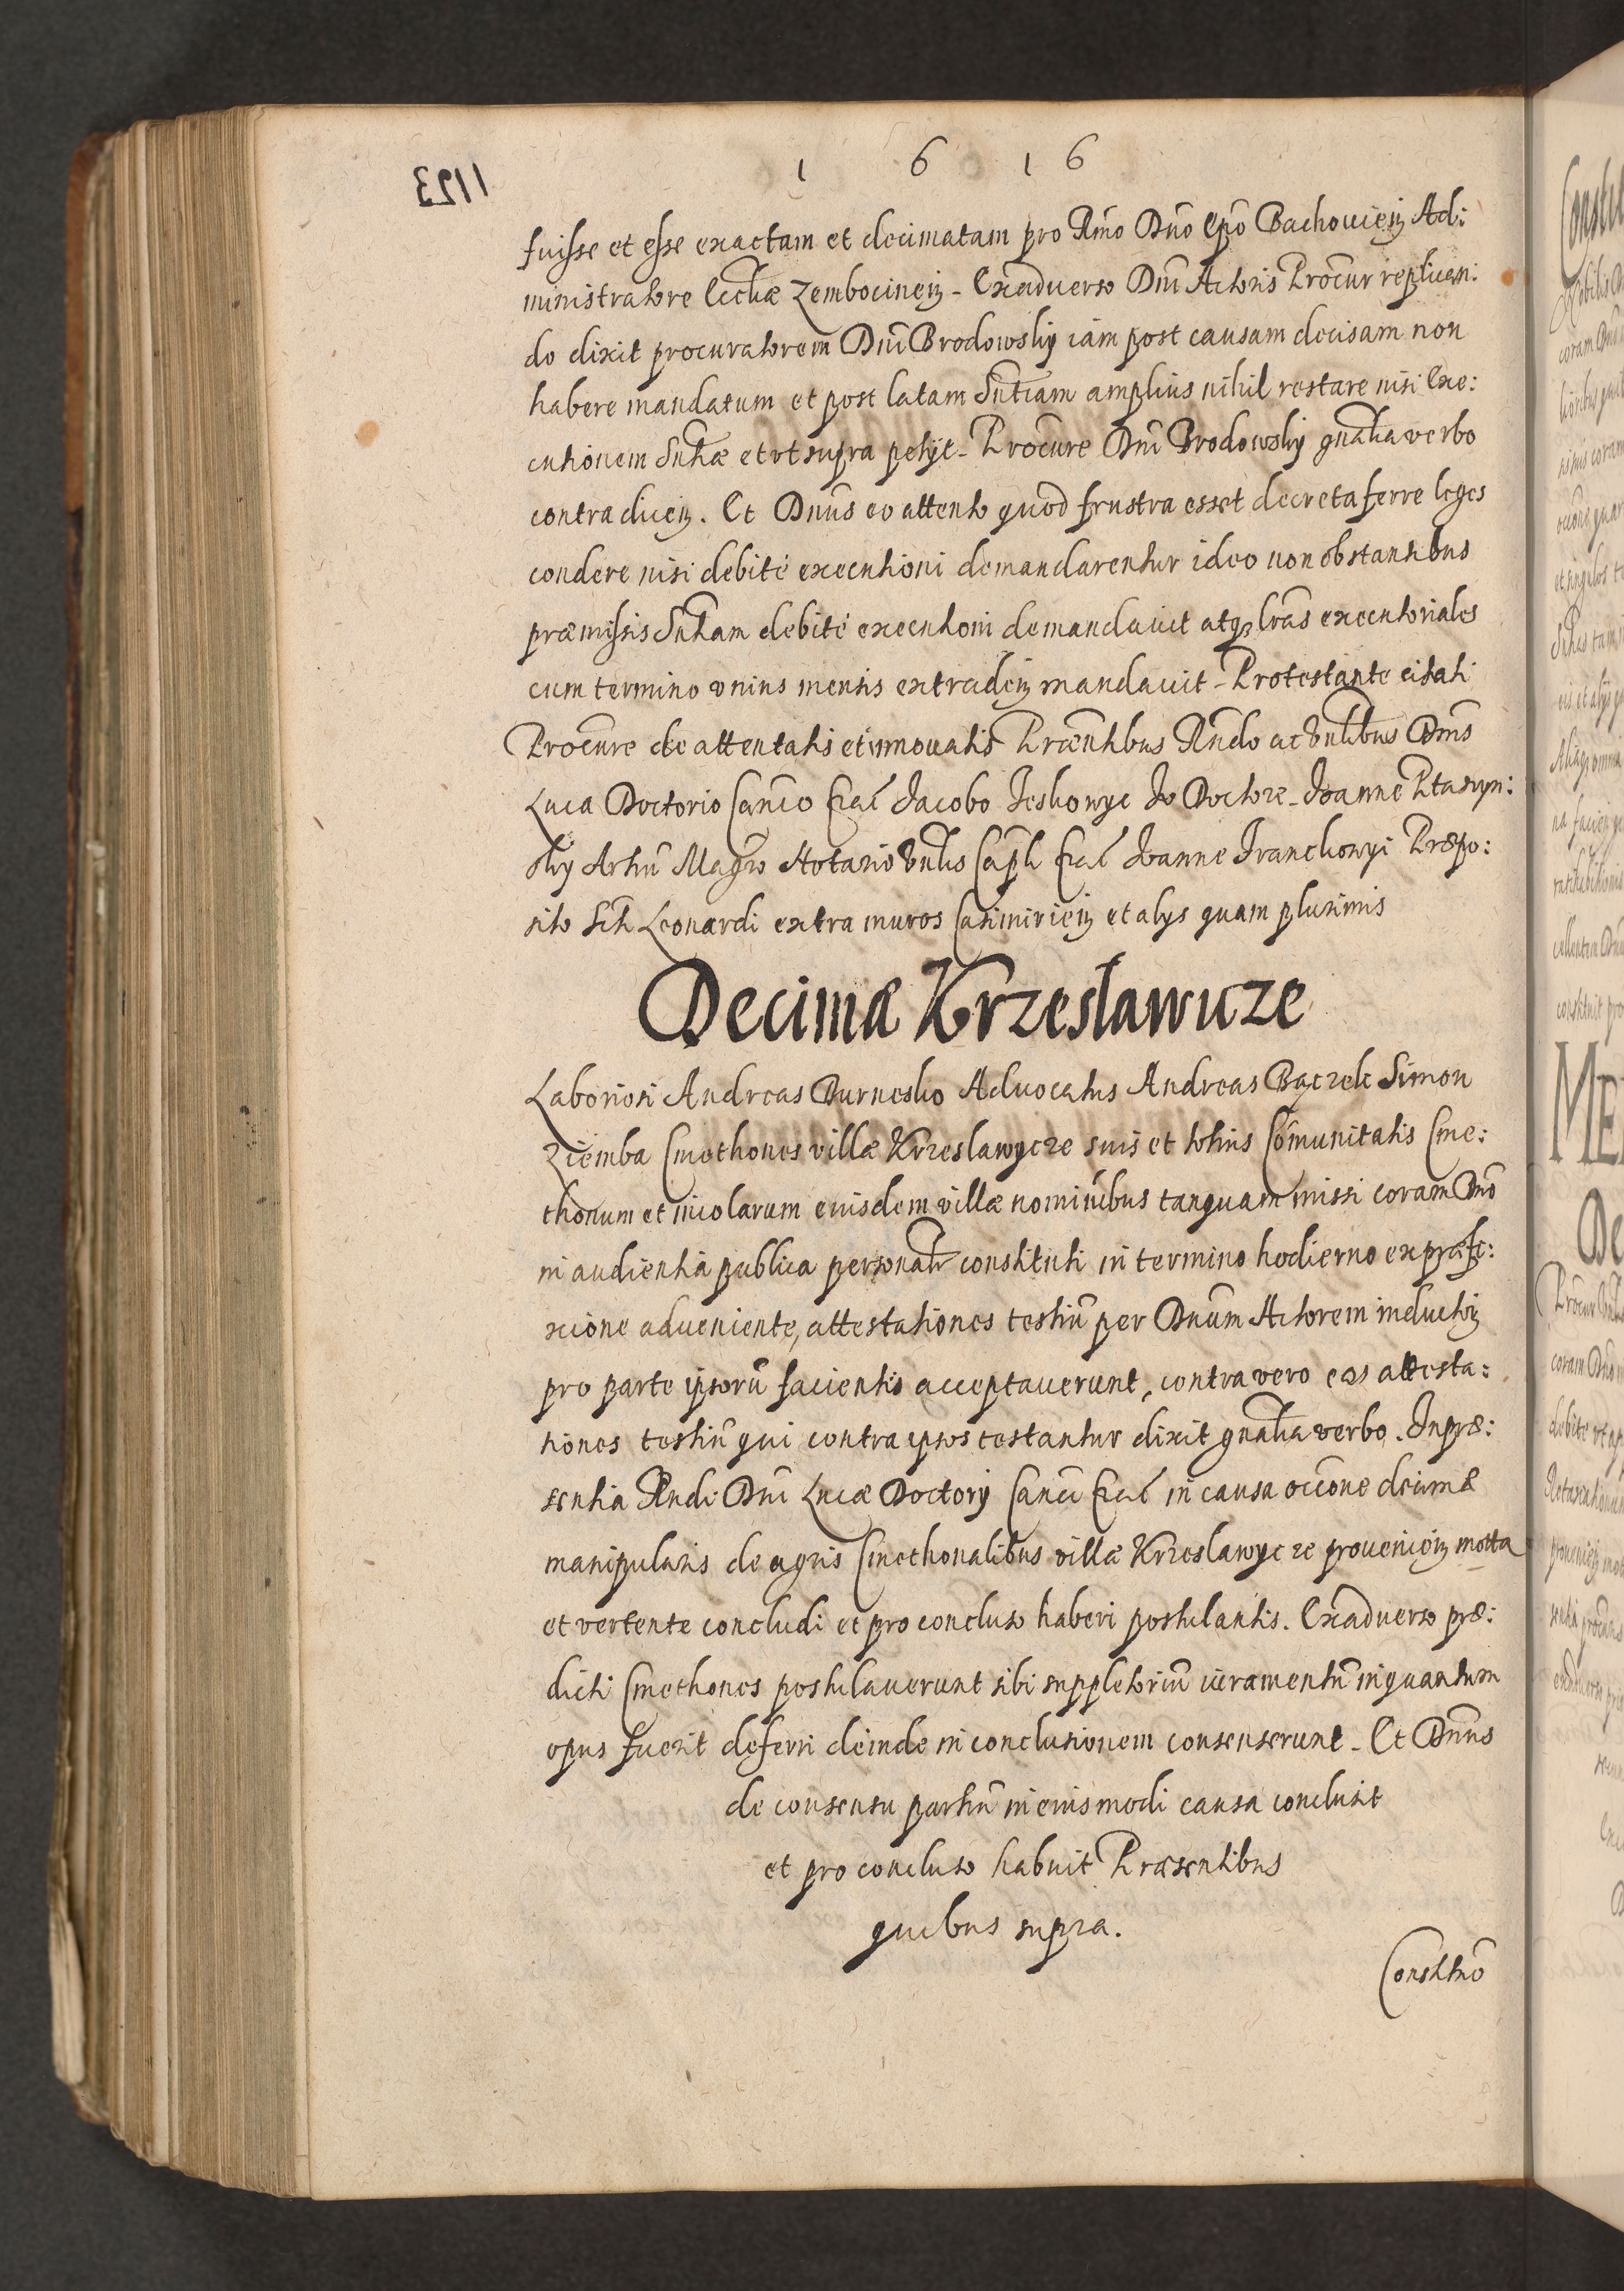 1 6 1 6
1123
fuisse et esse exactam et decimatam pro Rmo Dno Epo Bachouien Ad:
ministratore Eccliæ Zembocinen - Exaduerso Dni Actoris Procur replican:
do dixit procuratorem Dni Brodowsky iam post causam decisam non
habere mandatum et post latam Sntiam amplius nihil restare nisi Exe:
cutionem Sntiæ et vt supra petijt - Procure Dni Brodowsky gnalia verbo
contradicen. Et Dnus eo attento quod frustra esset decreta ferre leges
condere nisi debité executioni demandarentur ideo non obstantibus
præmissis Sntiam debité executioni demandauit atq lras executoriales
cum termino vnius mensis extraden mandauit - Protestante citati
Procure de attentatis et innouatis Præntibus Rndo ac Vnlibus Dnis
Luca Doctorio Canco Crac Jacobo Jeskowyc Jo Doctore - Joanne Ptaszyn:
sky Artiu Magro Notario Vnlis Capli Crac Joanne Iranckowyi Præpo:
sito Scti Leonardi extra muros Casimirien et alys quam plurimis
Decima Krzesławicze
Laboriosi Andreas Durnesko Aduocatus Andreas Bączek Simon
Ziemba Cmethones villæ Krzeslawycze suis et totius Comunitatis Cme:
thonum et incolarum eiusdem villæ nominibus tanquam missi coram Dno
in audientia publica personalr constituti in termino hodierno ex præfi:
xione adueniente, attestationes testiu per Dnum Actorem inductor
pro parte ipsoru facientis acceptauerunt, contra vero eas attesta:
tiones testiu qui contra ipsos testantur dixit gnalia verbo. In præ:
sentia Rndi Dni Lucæ Doctory Canci Crac in causa occone decimæ
manipularis de agris Cmethonalibus villæ Krzeslawycze prouenien motta
et vertente concludi et pro concluso haberi postulantis. Exaduerso præ:
dicti Cmethones postulauerunt sibi suppletoriu iuramentu inquantum
opus fuerit deferri deinde in conclusionem consenserunt - Et Dnus
de consensu partiu in eiusmodi causa conclusit
et pro concluso habuit Præsentibus
quibus supra.
Constituo